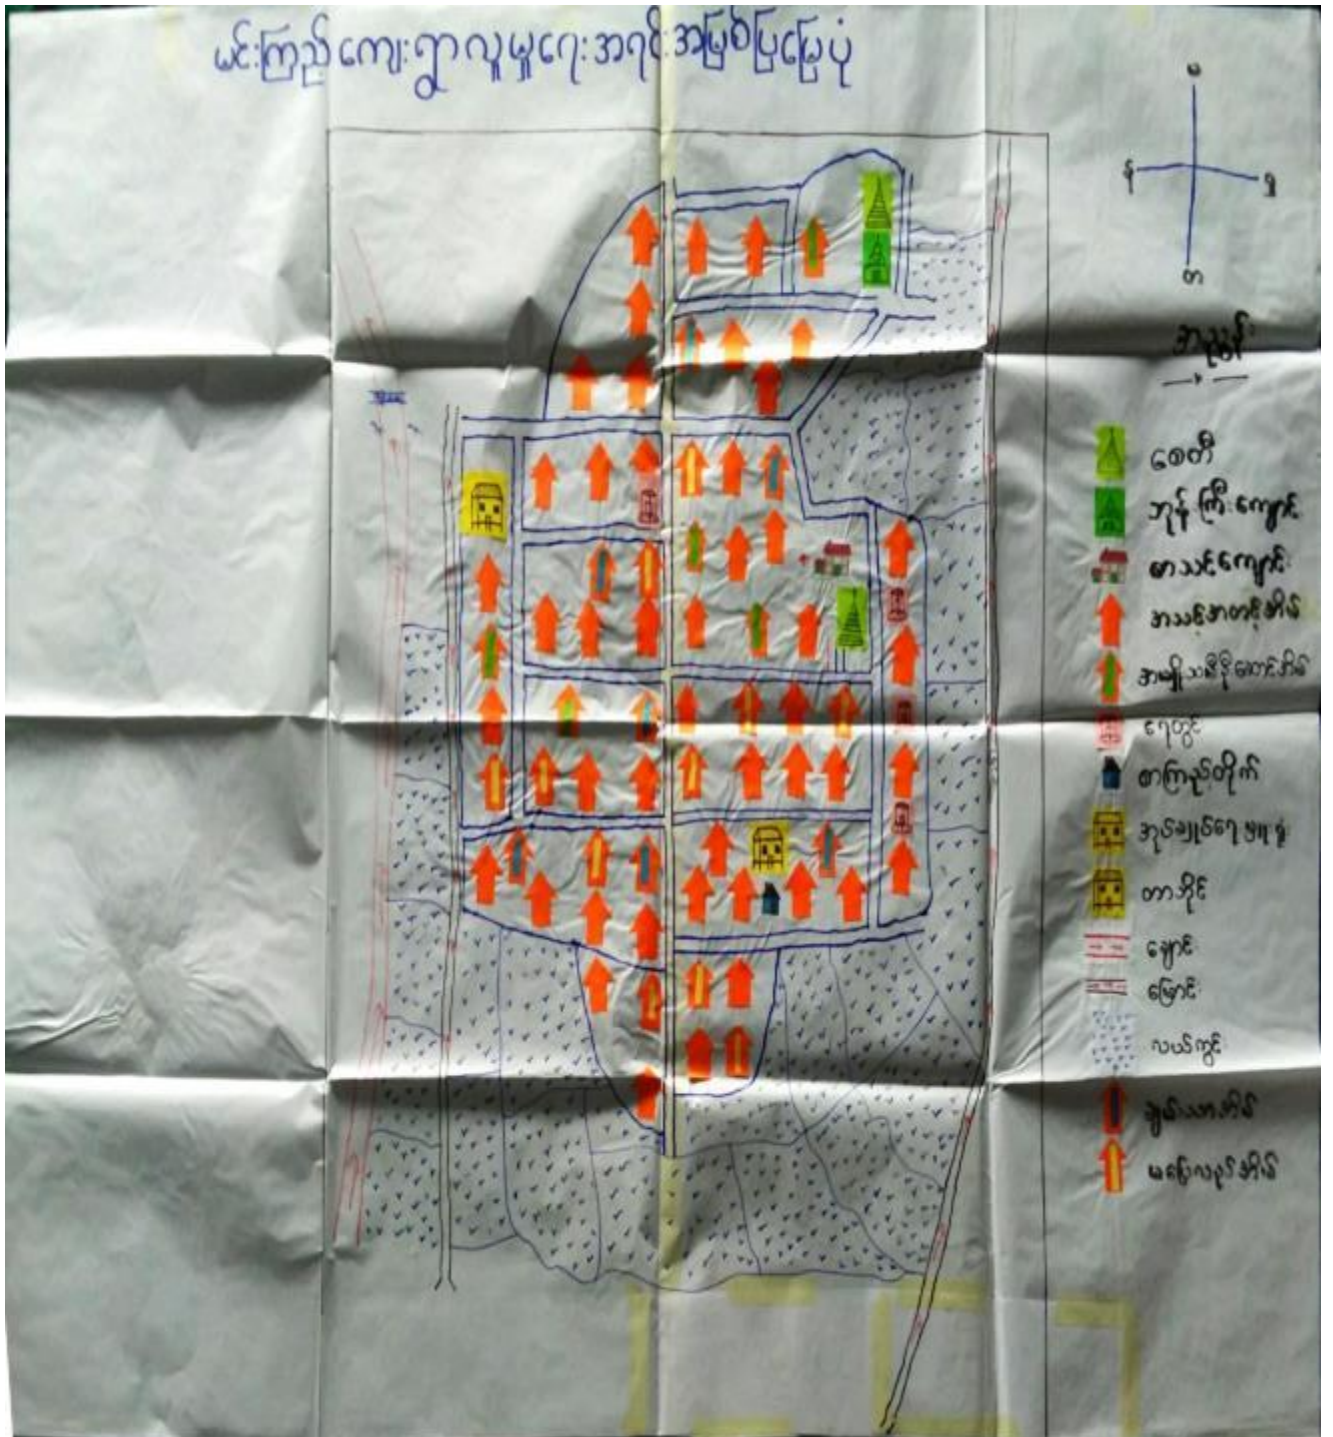 မင်းကြည်ကျေးရွာလူမှုရေးအရင်းအမြစ်ပြမြေပုံ
မ
န
ရှ
တ
အညွှန်း
စေတီ
ဘုန်းကြီးကျောင်း
စာသင်ကျောင်း
အသင့်အတင့်အိမ်
အမျိုးသမီးဦးဆောင်အိမ်
ရေတွင်း
စာကြည့်တိုက်
အုပ်ချုပ်ရေးမှူးရုံး
တာဘိုင်
ချောင်း
မြောင်း
လယ်ကွင်း
ချမ်းသာအိမ်
မပြေလည်အိမ်